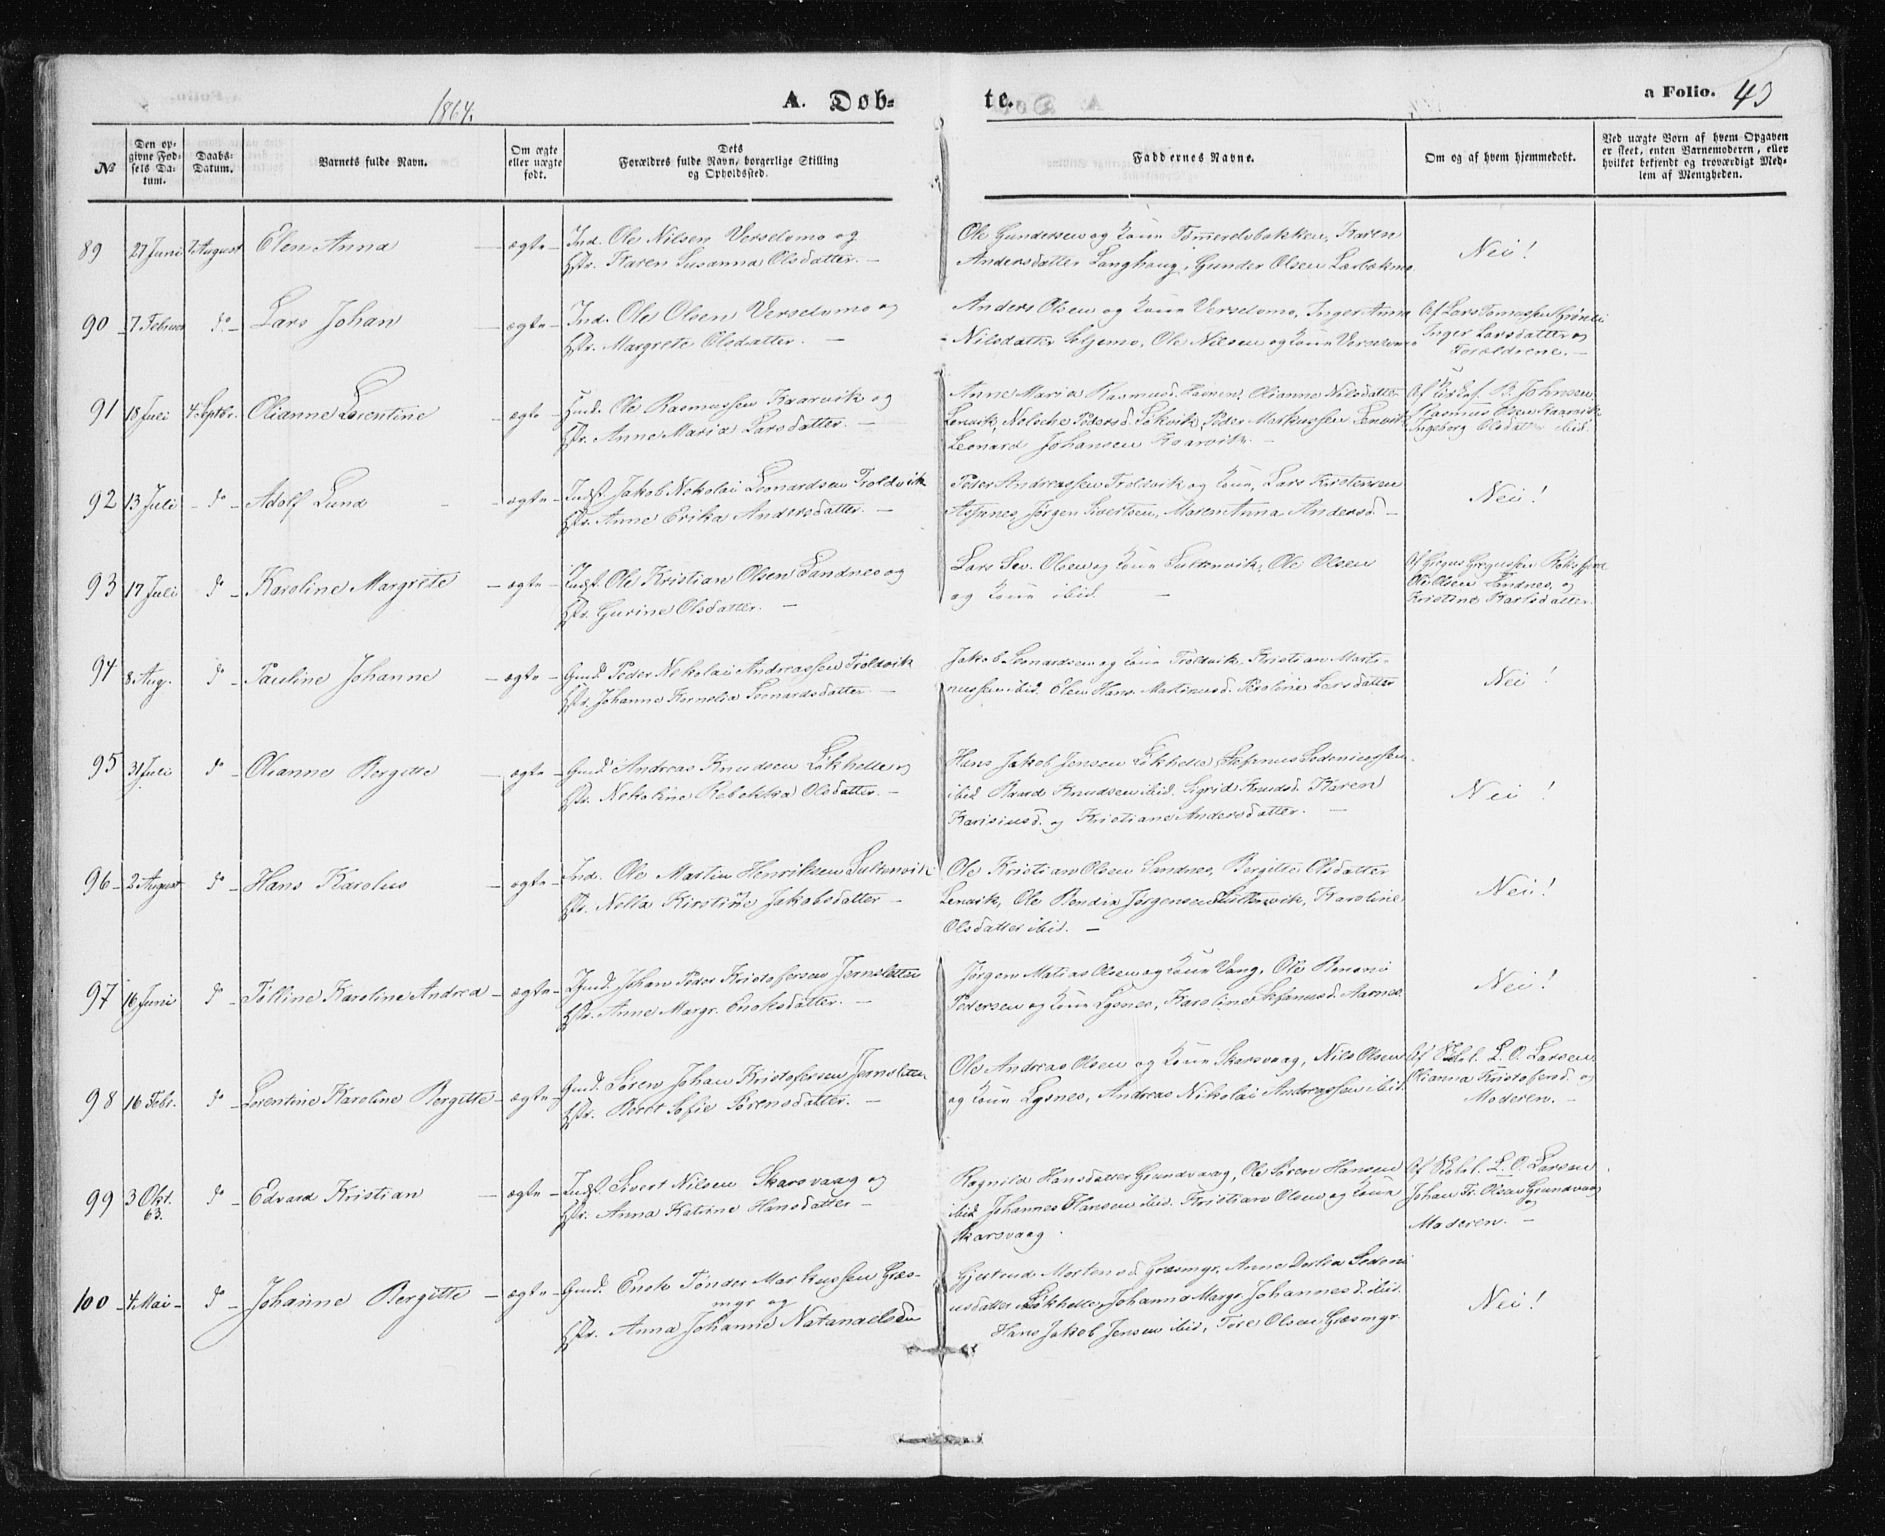 1864.
A. Døb-
te.
a Folio. 43
No
Den opgivne Fødsels Datum.
Daabs-Datum.
Barnets fulde Navn.
Om ægte eller uægte født.
Dets Forældres fulde Navn, borgerlige Stilling og Opholdssted.
Faddernes Navne.
Om og af hvem hjemmedøbt.
Ved uægte Børn af hvem Opgaven er skeet, enten Barnemoderen, eller hvilket bekjendt og troværdigt Medlem af Menigheden.
89 27 Juni 7 August Elen Anna ægte Ind. Ole Nilsen Verselvmo og
Hstr. Karen Susanna Olsdatter.
Ole Gundersen og Kone Tømmerelvbakken, Karen
Andersdatter Langhaug, Gunder Olsen
Nei!
90 7 Februar do Lars Johan ægte Ind. Ole Olsen Verselvmo og
Hstr. Margrete Olsdatter.
Anders Olsen og Kone Verselvmo, Inger Anna
Nilsdatter, Ole Nilsen og Kone Verselvmo
Af Lars Tomassen
Inger Larsdatter og
Forældrene.
91 18 Juli 4 Septbr. Olianne Lorentine ægte Gmd. Ole Rasmussen Kaarvik og
Hstr. Anne Maria Larsdatter.
Anne Maria Rasmusd. Havnen, Olianne Nilsdatter
Lenvik, Pedersd. Løkvik, Peder Markussen Lenvik
Leonard Johansen Kaarvik.
B. Johnsen
Rasmus Olsen Kaarvik
Ingeborg Olsdatter ibid.
92 13 Juli do Adolf Lund ægte Indst. Jakob Nekolai Leonardsen Troldvik
Hstr. Anne Erika Andersdatter.
Peder Andreassen Troldvik og Kone, Lars Kristensen
Aspenes, Jørgen Sivertsen, Maren Anna Andersd.
Nei!
93 17 Juli do Karoline Margrete ægte Indst. Ole Kristian Olsen Sandnes og
Hstr. Gurine Olsdatter.
Lars Sev. Olsen og Kone Sultenvik, Ole Olsen
og Kone ibid.
Ole Olsen Sandnes, og
Kristine Karlsdatter.
94 8 Aug. do Pauline Johanne ægte Gmd. Peder Nekolai Andreassen Troldvik
Hstr. Johanne Kornelia Leonardsdatter
Jakob Leonardsen og Kone Troldvik, Kristian Marti-
nussen ibid. Elen Hans. Martinusd. Karoline Larsdatter
Nei!
95 31 Juli do Olianne Bergitte ægte Gmd. Andreas Knudsen Løkhelle og
Hstr. Nekoline Rebekka Olsdatter.
Hans Jakob Jensen Løkhelle, Stefanus Sedeniussen
ibid. Baard Knudsen ibid. Sigrid Knudsd. Karen
Karisiusd. og Kristiane Andersdatter.
Nei!
96 2 August do Hans Karolus ægte Ind. Ole Martin Henriksen Sultenvik
Hstr. Nella Kirstine Jakobsdatter
Ole Kristian Olsen Sandnes, Bergitte Olsdatter
Lenvik, Ole Bendix Jørgensen Sultenvik, Karoline
Olsdatter ibid.
Nei!
97 16 Juni do Tolline Karoline Andrea ægte Gmd. Johan Peder Kristofersen Jernsletten
Hstr. Anne Margr. Enoksdatter.
Jørgen Matias Olsen og Kone Vang, Ole Benoni
Pedersen og Kone Lysnes, Karoline Stefanusd. Aarnes
Nei!
98 16 Febr. do Lorentine Karoline Bergitte ægte Gmd. Søren Johan Kristofersen Jernsletten
Hstr. Beret Sofie Sørensdatter.
Ole Andreas Olsen og Kone Skarsvaag, Nils Olsen
og Kone Lysnes, Andreas Nikolai Andreassen ibid.
Af Skolel. L. O. Larsen
Olianna Kristofersd. og
Moderen.
99 3 Okt. 63. do Edvard Kristian ægte Indst. Sivert Nilsen Skarsvaag og
Hstr. Anna Katrine Hansdatter
Ragnild Hansdatter Grundvaag, Ole Søren Hansen
ibid Johannes Hansen ibid. Kristian Olsen og Kone
Skarsvaag.
Af Skolel. L. O. Larsen
Johan Fr. Olsen Grundvaag
og
Moderen.
100 4 Mai do Johanne Bergitte ægte Gmd. Enok Tønder Markussen Græs-
myr og
Hstr. Anna Johanne Natanaelsdtr
Gjertrud Mortensd. Græsmyr, Anne Dortea Sedeni-
usdatter Løkhelle, Johanna Margr. Johannesd. ibid.
Hans Jakob Jensen ibid, Tore Olsen Græsmyr.
Nei!